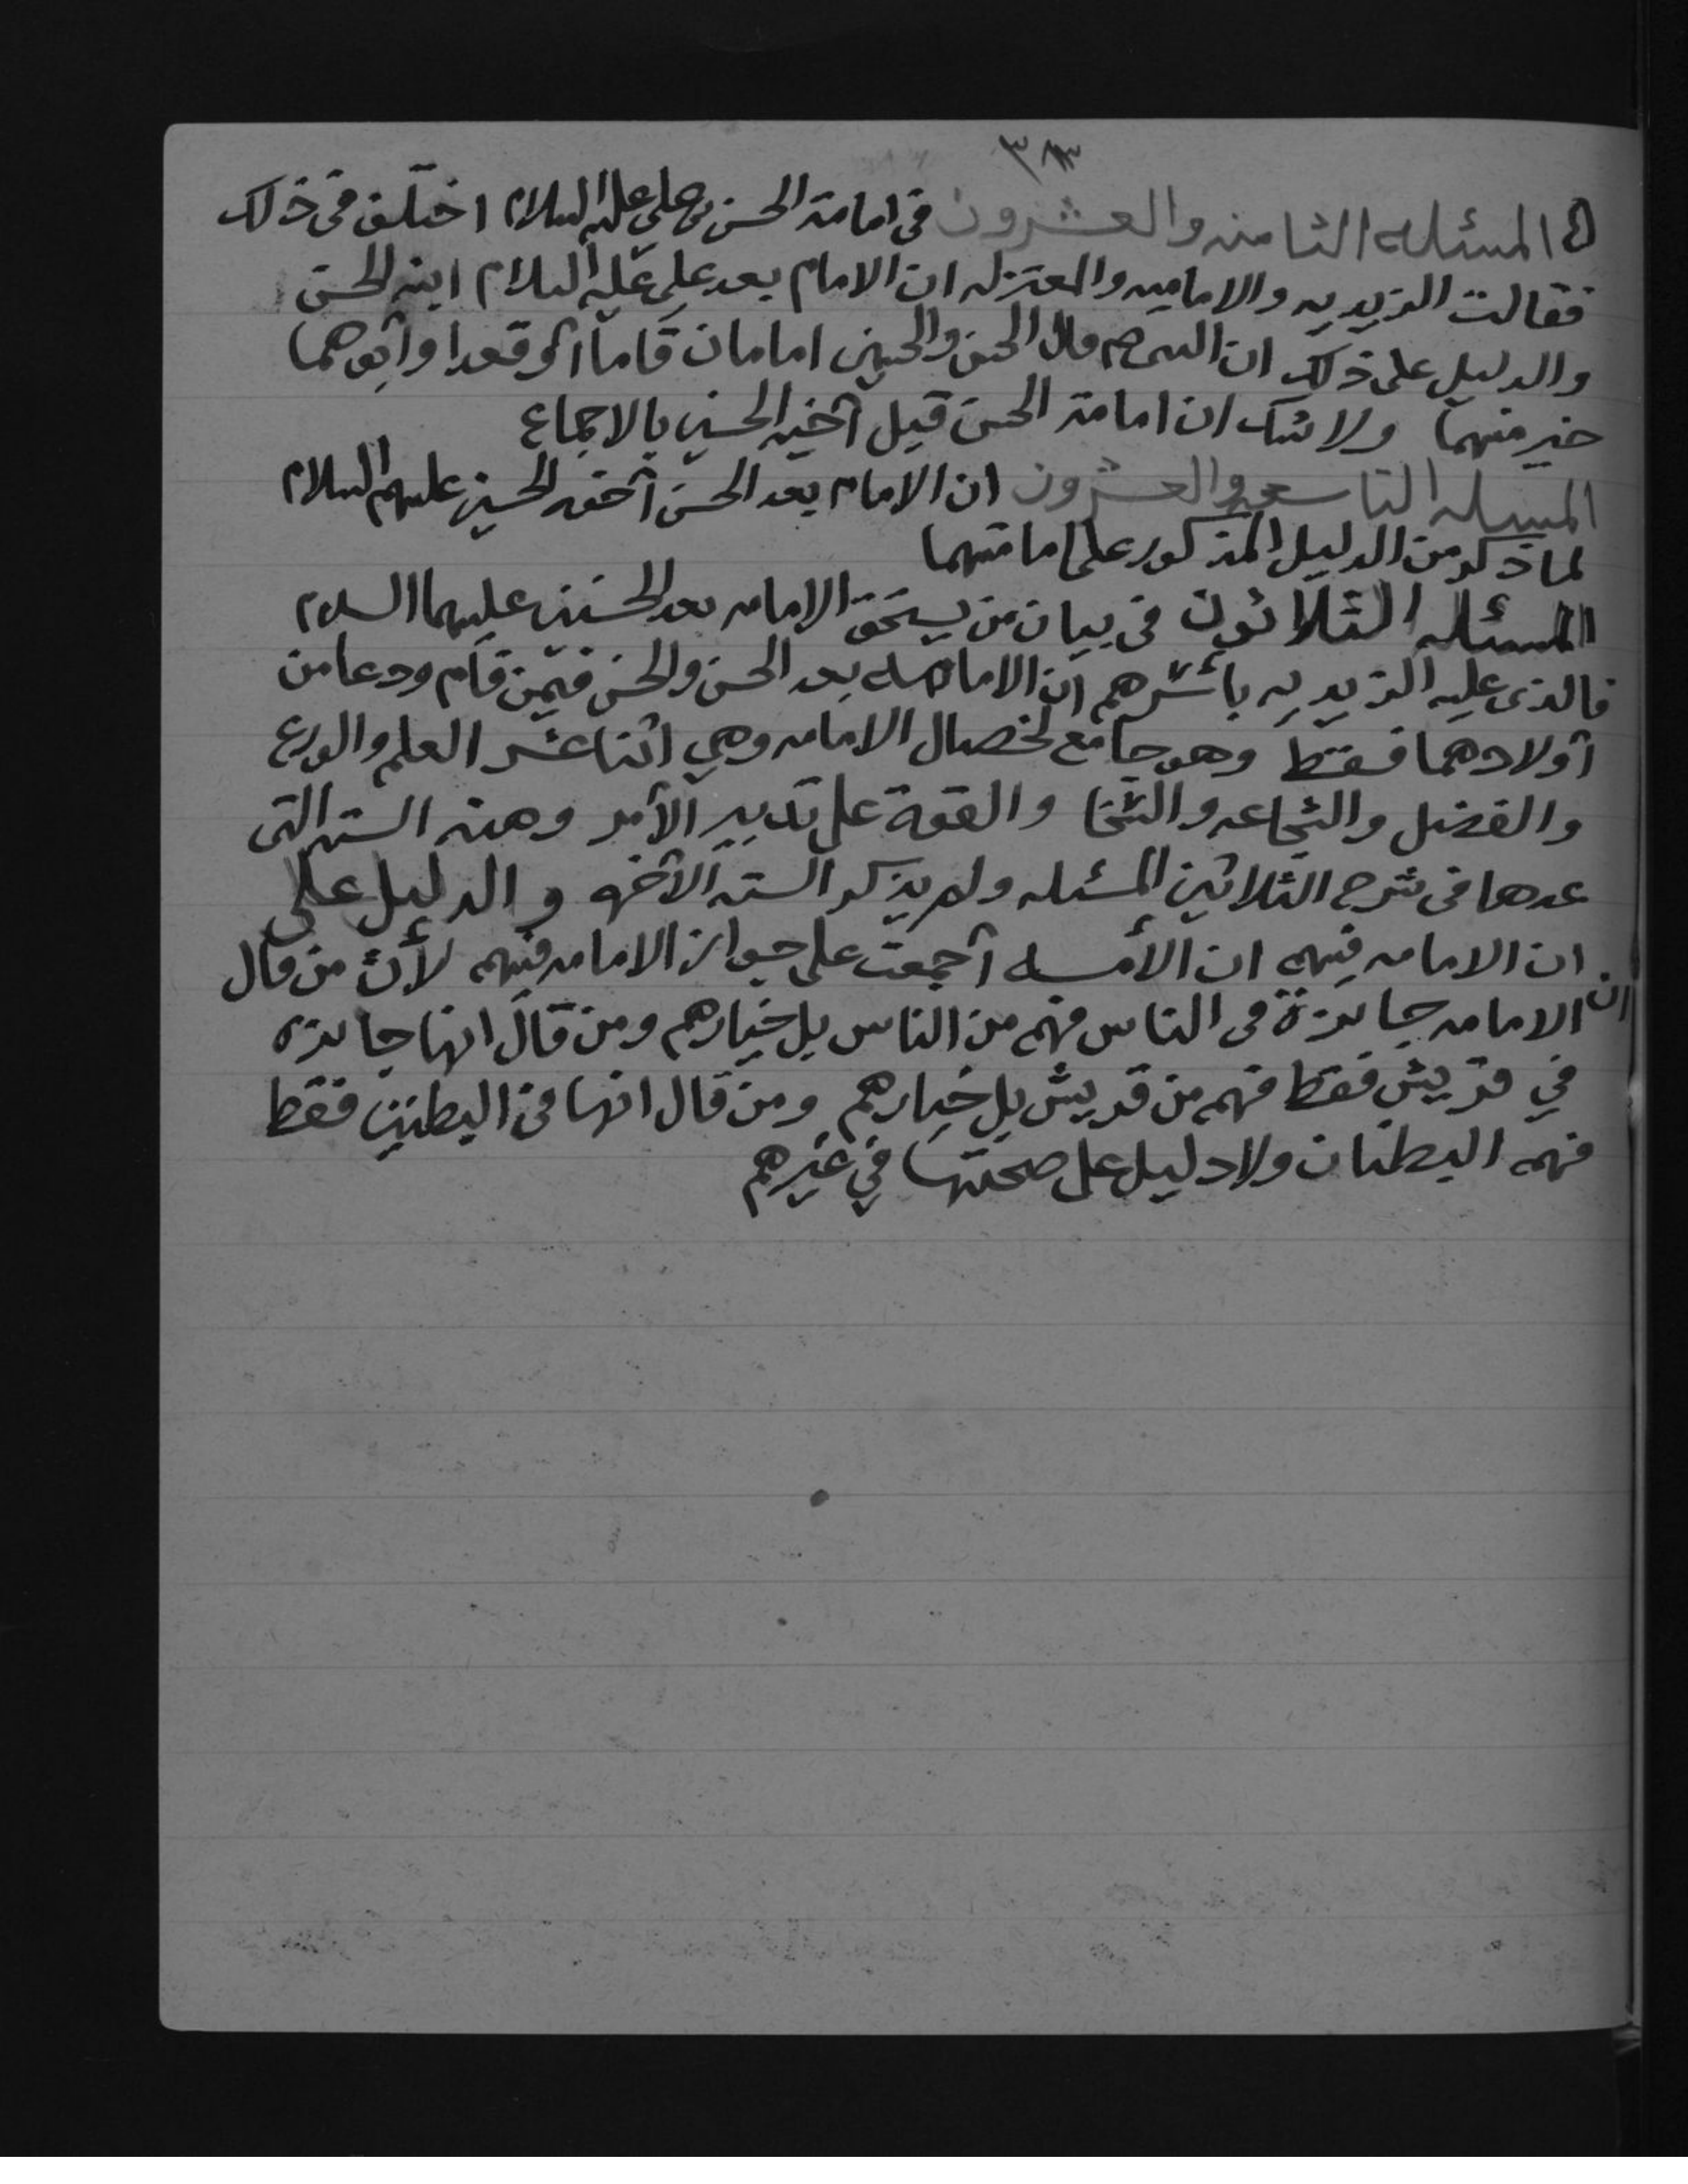 المسئله الثامنه والعشرون في امامة الحسن بن علي عليه السلام اختلف في ذلك
فقالت الزيديه والاماميه والمعتزله ان الامام بعد علي عليه السلام ابنه الحسن
والدليل على ذلك ان النبي صلم قال الحسن والحسين امامان قاما أو قعدا وأبوهما
خير منهما ولا شك ان امامة الحسن قبل أخيه الحسين بالاجماع
المسىله التاسعه والعشرون ان الامام بعد الحسن أخوه الحسين عليهم السلام
لما ذكر من الدليل المذكور على امامتهما
المسئله الثلاثون في بيان من يستحق الامامه بعد الحسنين عليهما السلام
فالذى عليه الزيديه بأسرهم ان الامامه بعد الحسن والحسن فيمن قام ودعا من
أولادهما فقط وهو جامع لخصال الامامه وهي اثنا عشر العلم والورع
والفضل والشجاعه والسخا والقوة على تدبير الأمر وهذه السته التى
عدها في شرح الثلاثين المسئله ولم يذكر السته الآخره والدليل على
ان الامامه فيهم ان الأمه أجمعت على جواز الامامه فيهم لأن من قال
ان الامامه جائزة في الناس فهم من الناس بل خيارهم ومن قال انها جائزه
في قريش فقط فهم من قريش بل خيارهم ومن قال انها في البطنين فقط
فهم البطنان ولا دليل على صحتها في غيرهم